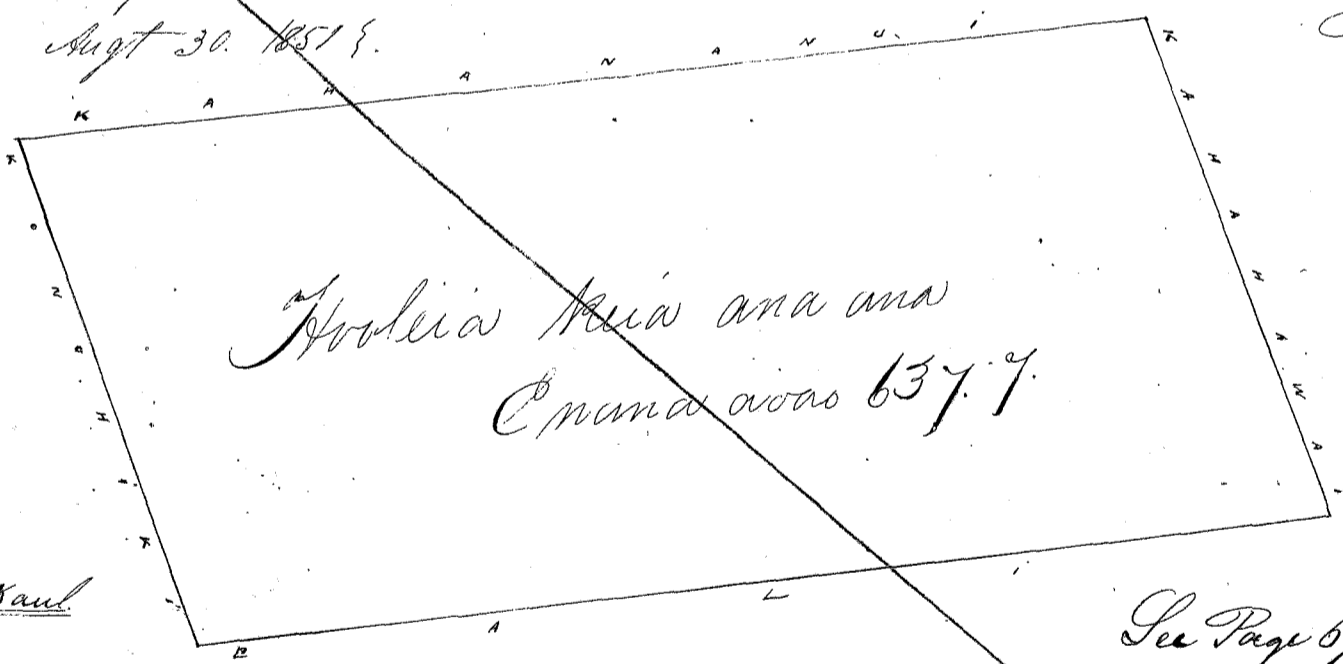 Augt 30. 1851
KAHANANUI
KAHAHAWAI
Hooleia keia ana ana
E nana aoao 637.7.
PALI
Kaul
See Page 6